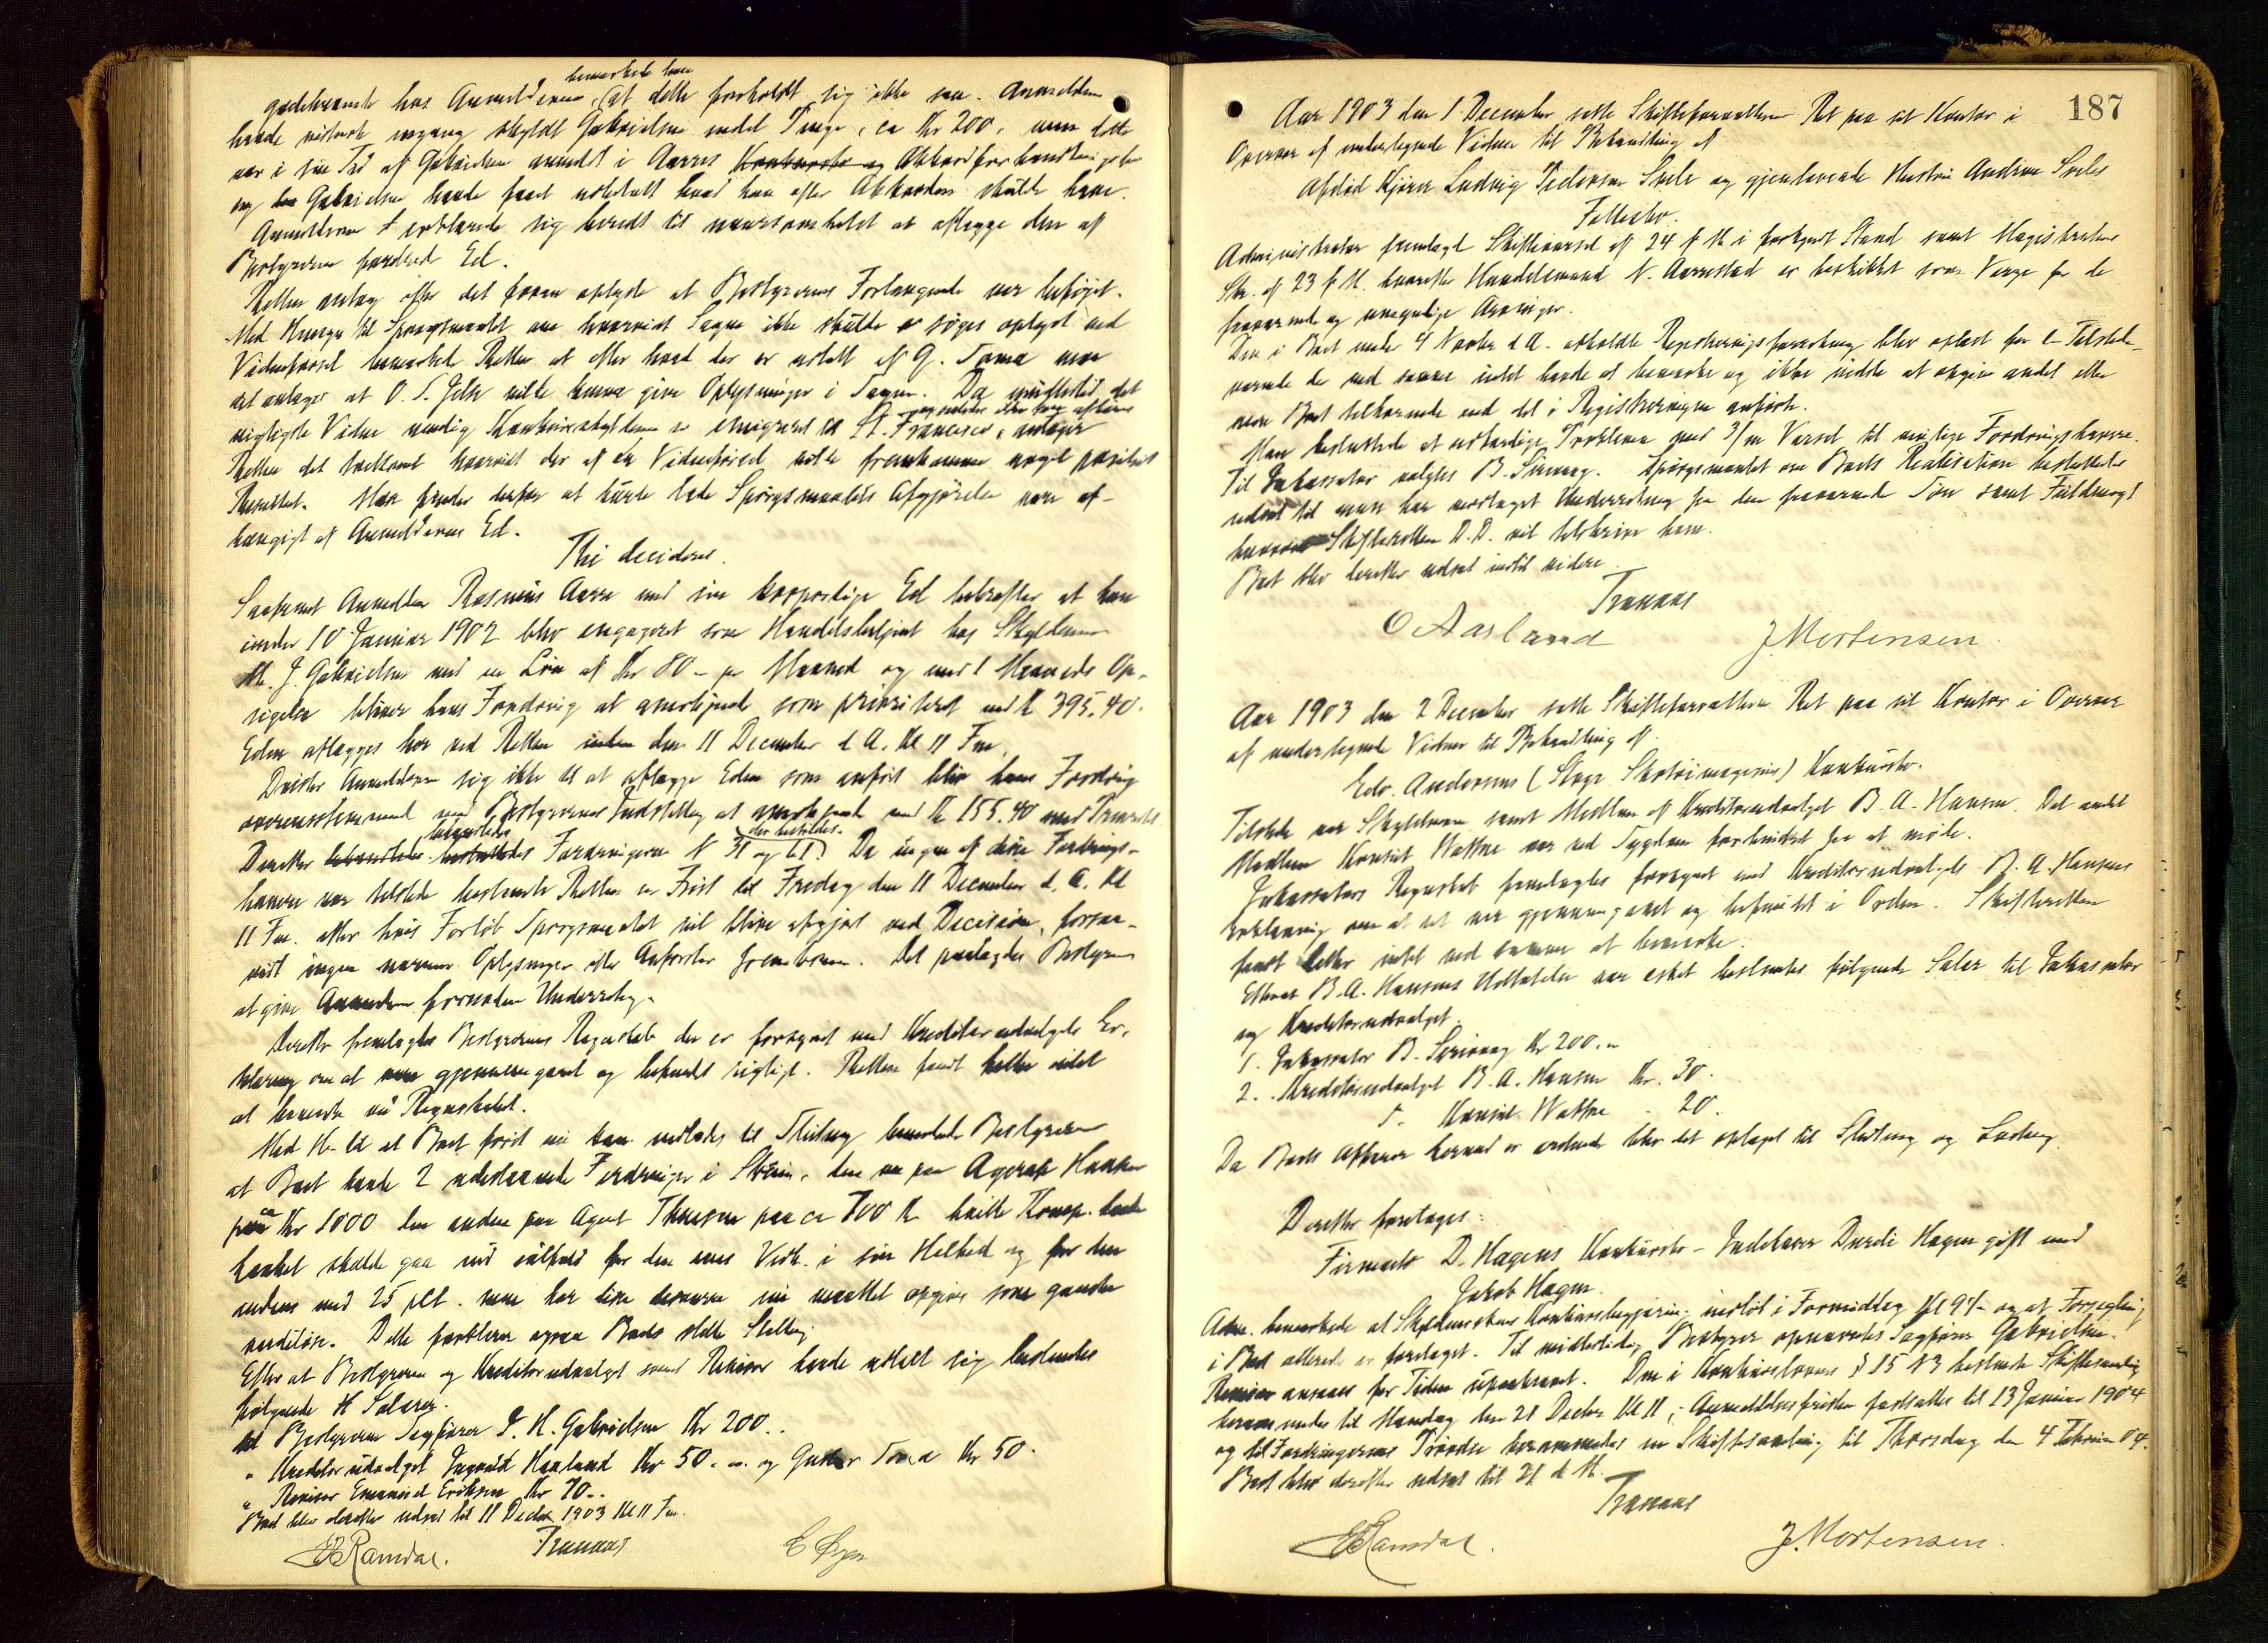 bemærket have
godskrevet hos Anmelderen, at dette forholdt sig ikke saa. Anmelderen
havde vistnok engang skyldt Gabrielsen endel Penge, ca Kr 200, men dette
var i sin Tid af Gabrielsen anmeldt i Aarres Konkursbo og Akkordforhandlinger
og Gabrielsen havde faaet udbetalt hvad han efter Akkorden skulde have.
Anmelderen erklærede sig beredt til at aflægge den af
Bestyreren fordrede Ed.
Retten antog efter det foran oplyste at Bestyrerens Forlangende var beføiet.
Med Hensyn til Spørgsmaalet om hvorvidt Sagen ikke skulde søges oplyst ved
Vidneførsel bemærked Retten at efter hvad der er udtalt af G. Toma
det antages at O. S. Jelse vilde kunne give Oplysninger i Sagen. Da imidlertid det
vigtigste Vidne nemlig Konkursskyldneren er emigreret til St. Francisco, antager
Retten det tvilsomt hvorvidt der af en Vidneførsel vilde fremkomme noget positivt
Resultat. Man finder derfor at burde lade Spørgsmaalets Afgjørelse være af-
hængigt af Anmelderens Ed.
Thi decideres.
Saafremt Anmelder Rasmus Aarre med sin korporlige Ed bekræfter at han
under 10 Januar 1902 blev engageret som Handelsbetjent hos Skyldneren
M. J. Gabrielsen med en Løn af Kr 80 - pr Maaned og med 1 Maaneds Op-
sigelse bliver hans Fordring at anerkjende som prioriteret med K 395.40.
Eden aflægges her ved Retten den 11 December d A. Kl 11 Fm.
Drister Anmelderen sig ikke til at aflægge Eden som anført blir hans Fordring
overensstemmende med Bestyrerens Indstilling at anerkjende med K 155.40 med Prioritet
Derefter behandledes Fordringerne N 31 og 61 der bestrides. Da ingen af disse Fordrings-
havere var tilstede bestemte Retten en Frist til Fredag den 11 December d. A. Kl
11 Fm. efter hvis Forløb Spørgsmaalet vil blive afgjort ved Decision, forsaa-
vidt ingen nærmere Oplysninger eller Anførsler fremkommer. Det paalagdes Bestyreren
at give Anmelderne fornøden Underretning.
Derefter fremlagdes Bestyrerens Regnskab der er forsynet med Kreditorudvalgets Er-
klæring om at være gjennemgaaet og befundet rigtigt. Retten fandt heller intet
at bemærke ved Regnskabet.
Med H. til at Boet først nu kan indlades til Slutning bemærkede Bestyreren
at Boet havde 2 udestaaende Fordringer i Skien, den ene paa Agent Hansen
paa ca Kr 1000 den anden paa Agent Thomsen paa ca 700 K
tænket skulde gaa ind ialfald for den enes Vedk. i sin Helhed og for den
andens med 25 pCt. men har disse desværre nu maattet opgives som ganske
værdiløse. Dette forklarer ogsaa Boets slette Stilling.
Efter at Bestyreren og Kreditorudvalget samt Revisor havde udtalt sig bestemtes
følgende Salærer.
til Bestyreren Sagfører J. H. Gabrielsen Kr 200..
" Kreditorudvalget Ingvald Haaland Kr 50.- og Gunnar Toma Kr 50.
" Revisor Emanuel Eriksen Kr 70..
Boet blev derefter udsat til 11 Decbr 1903 Kl 11 Fm.
Tranaas
E Ramdal.
187
Aar 1903 den 1 December satte Skifteforvalteren Ret paa sit Kontor i
Overvær af undertegnede Vidner til Behandling af
Afdød Kjører Ludvig Pedersen Svele og gjenlevende Hustru Andrea Sveles
Fællesbo.
Administrator fremlagde Skiftevarsel af 24 f M i forkyndt Stand samt Magistratens
Skr. af 23 f M. hvorefter Handelsmand N. Aarrestad er beskikket som Verge for de
fraværende og umyndige Arvinger.
Den i Boet under 4 Novbr d A. afholdte Registreringsforretning blev oplæst for de Tilstede-
værende der ved samme intet havde at bemærke og ikke vidste at opgive andet eller
mere Boet tilhørende end det i Registreringen anførte.
Man besluttede at udfærdige Proklama med 3/m Varsel til mulige Fordringshavere.
Til Inkassator valgtes B. Sirevaag. Spørgsmaalet om Boets Realisation besluttedes
udsat til man har modtaget Underretning fra den fraværende Søn samt Fuldmagt
hvorom Skifteretten D.D. vil tilskrive ham.
Boet blev derefter udsat indtil videre.
Tranaas
O Aarland J. Mortensen.
Aar 1903 den 2 December satte Skifteforvalteren Ret paa sit Kontor i Overvær
af undertegnede Vidner til Behandling af
Edv. Andersens (Stage Skotøimagasins) Konkursbo.
Tilstede var Skyldneren samt Medlem af Kreditorudvalget B. A. Hansen. Det andet
Medlem Konsul Wattne var ved Sygdom forhindret fra at møde.
Inkassators Regnskab fremlagdes forsynet med Kreditorudvalgets B. A. Hansens
Erklæring om at det var gjennemgaaet og befundet i Orden. Skifteretten
fandt heller intet ved samme at bemærke.
Efterat B. A. Hansens Udtalelse var æsket bestemtes følgende Salær til Inkassator
og Kreditorudvalget.
1. Inkassator B. Sirevaag Kr 200.-
2. Kreditorudvalget B. A. Hansen Kr. 30.
Konsul Wattne - 20.
Da Boets Affærer hermed er ordnede blev det optaget til Slutning og Lodning.
Derefter foretoges:
Firmaet D. Hagens Konkursbo - Indehaver Dorthe Hagen gift med
Jakob Hagen.
Adm. bemærkede at Skyldnerskens Konkursbegjæring indløb i Formiddag Kl 9½ og at Forsegling
i Boet allerede er foretaget. Til midlertidig Bestyrer opnævntes Sagfører Gabrielsen.
Revisor ansaaes for Tiden upaakrævet. Den i Konkurslovens § 15 N 3 bestemte Skiftesamling
berammedes til Mandag den 21 Decbr Kl 11, Anmeldelsesfristen fastsattes til 13 Januar 1904
og til Fordringernes Prøvelse berammedes en Skiftesamling til Thorsdag den 4 Februar 04.
Boet blev derefter udsat til 21 d M.
Tranaas
E Ramdal. J. Mortensen.